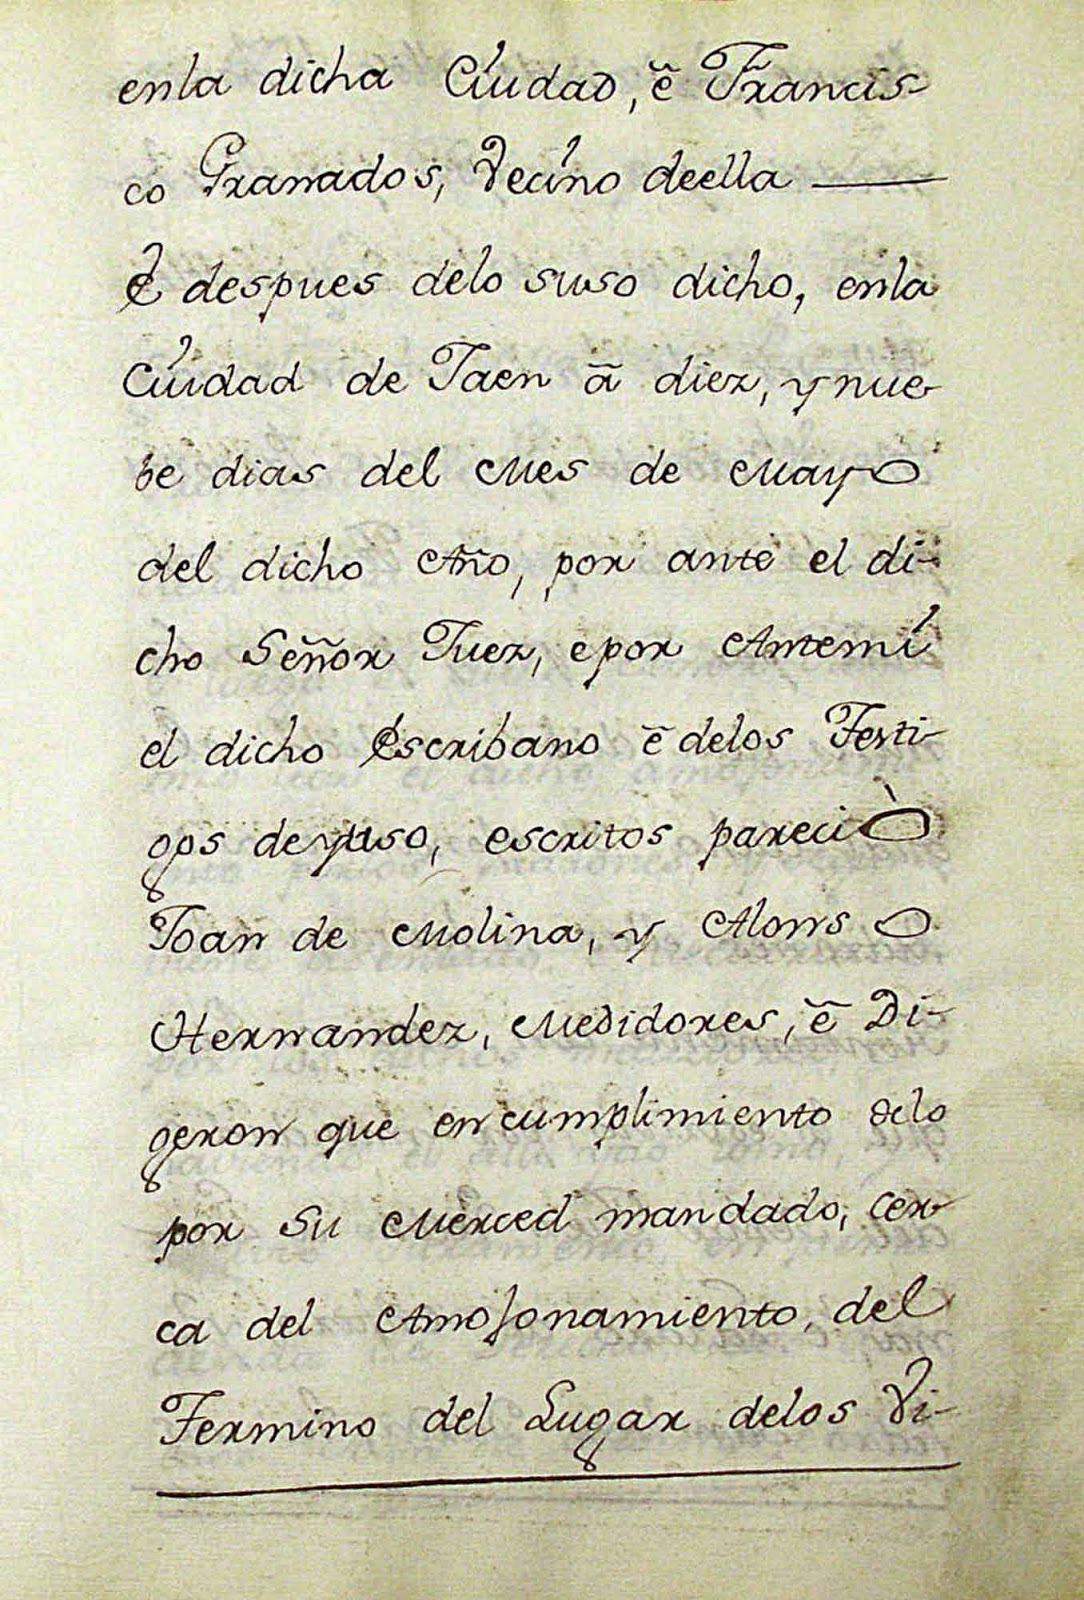 enla dicha Ciudad, ẽ Francis-
co Granados, Vecino deella ——
E despues delo suso dicho, enla
Ciudad de Jaen ã diez, y nue-
be dias del Mes de Mayo
del dicho Año, por ante el di-
cho Señor Juez, e por Antemi
el dicho Escribano ẽ delos Testi-
gos deyuso, escritos pareciò
Joan de Molina, y Alonso
Hernandez, Medidores, ẽ Di-
geron que en cumplimiento delo
por su Merced mandado, cer-
ca del Amojonamiento, del
Termino del Lugar delos Vi-